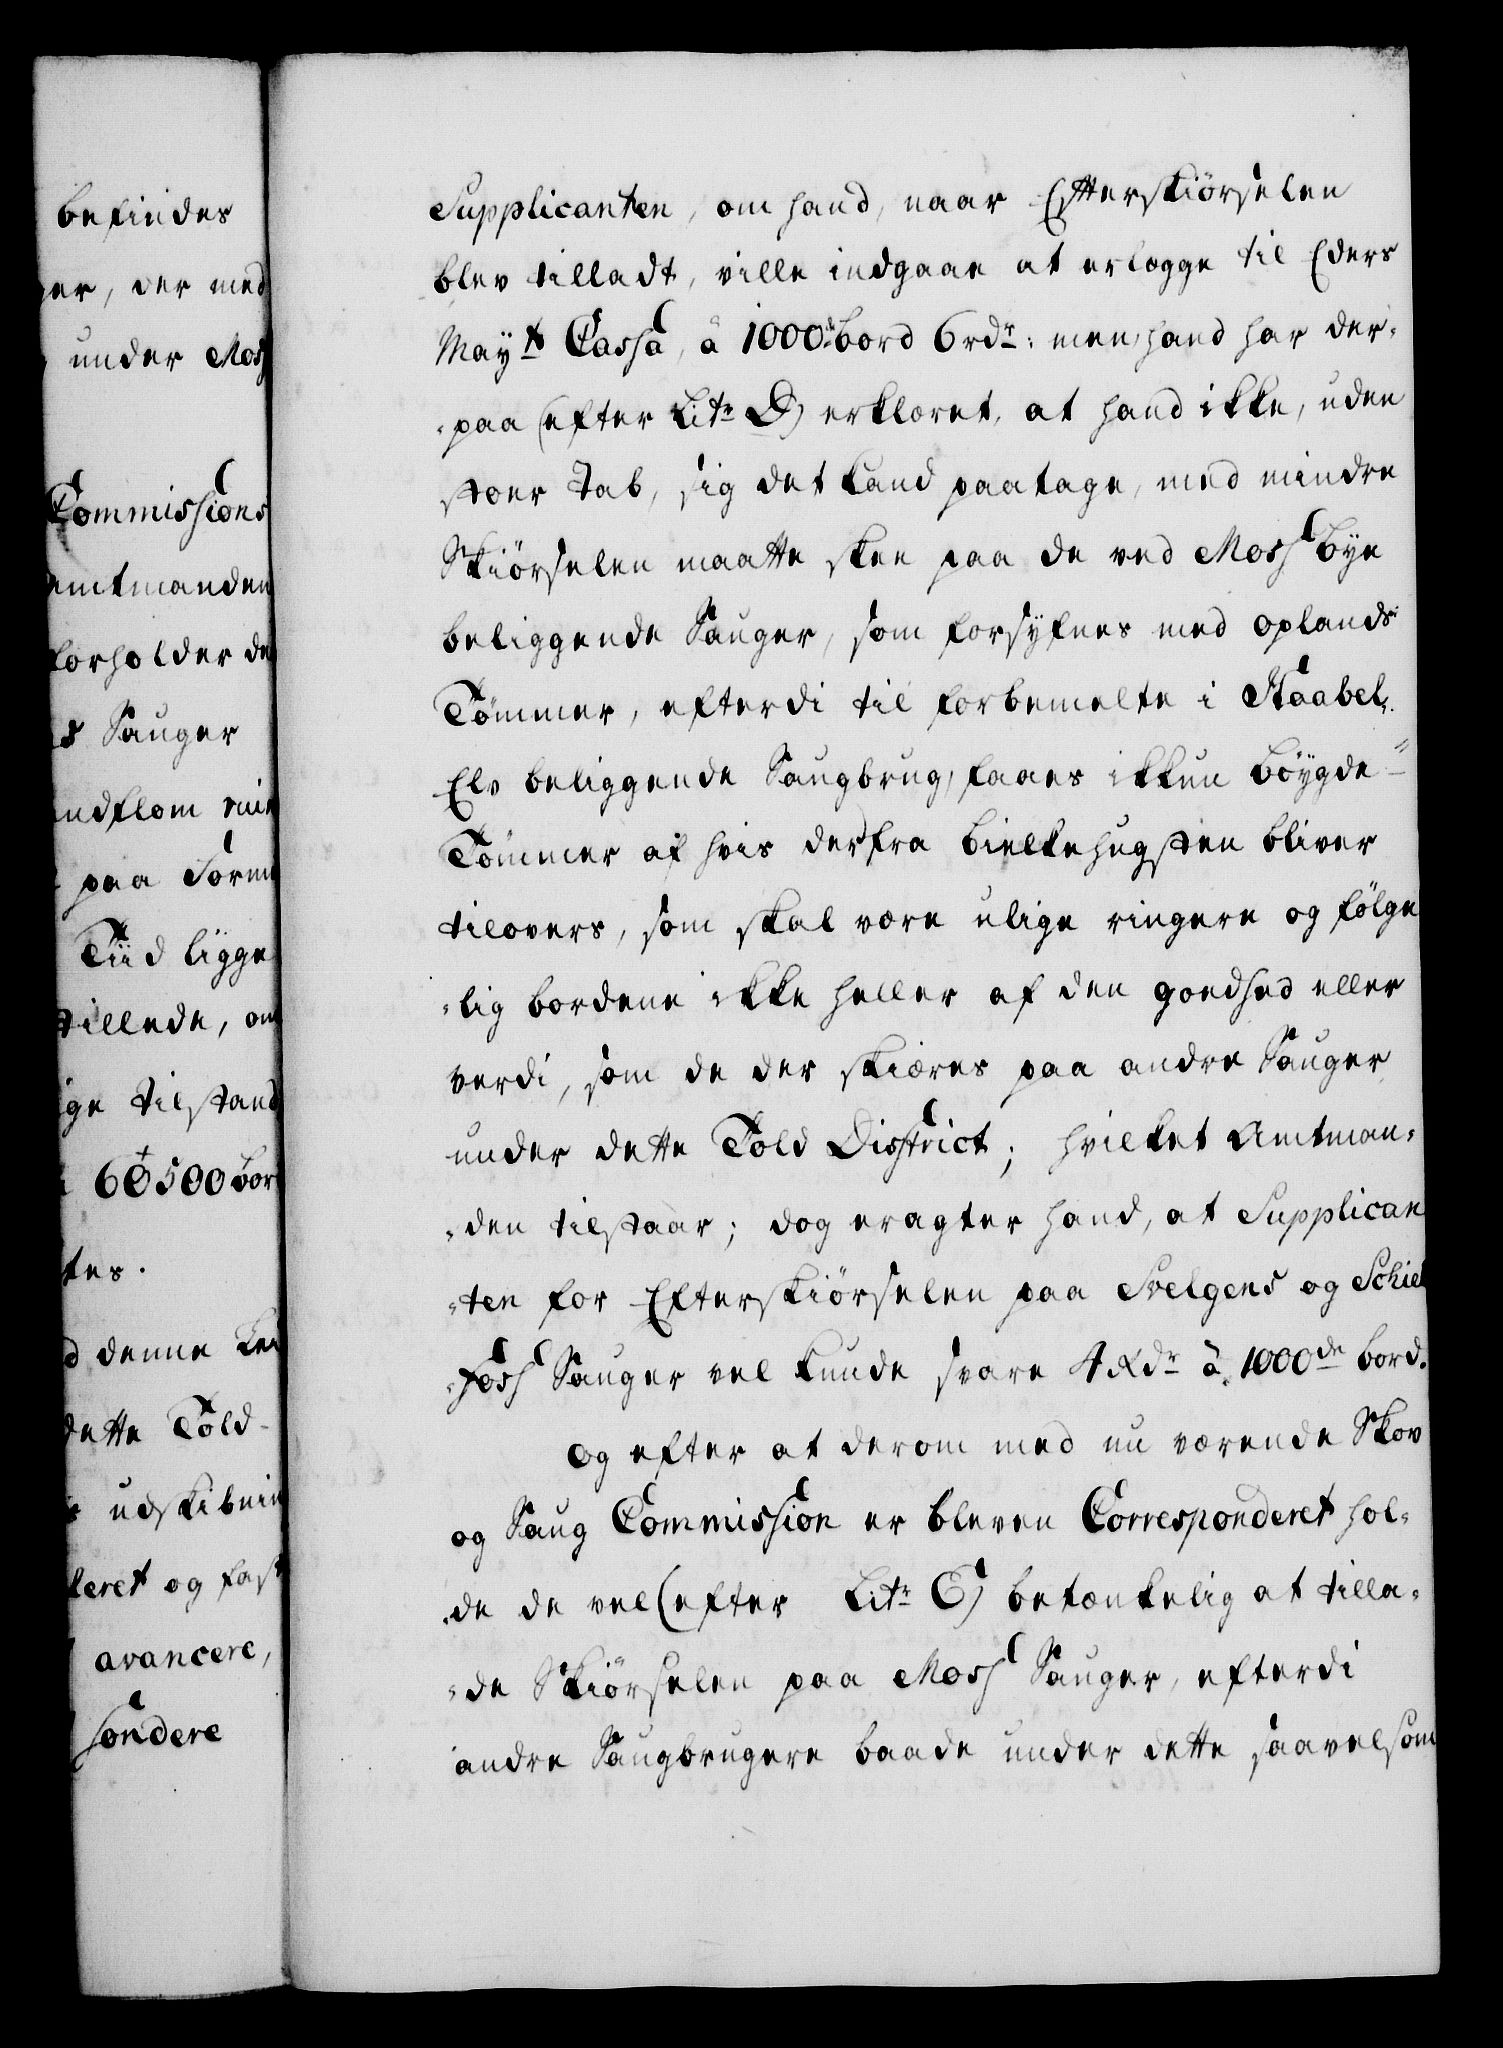 befindes
er, der med
under Moss
Commissions
Amtmanden
forholder de
s Sauger
ndflom
paa
Tiid ligge
stillede, om
ige tilstand
60500 bor
tes.
d denne
dette Told-
udskibnin
leret og fast
avancere,
sondere
Supplicanten, om hand, naar Efterskiörselen
blev tilladt, ville indgaae at erlægge til Eders
Mayts Cassa, à 1000de bord 6 rdr: men hand har der-
-paa (efter Litr D) erklæret, at hand ikke, uden
stoer Tab, sig det kand paatage, med mindre
Skiörselen maatte skee paa de ved Moss bye
beliggende Sauger, som forsÿnes med oplands
Tømmer, efterdi til forbemelte i Staabel-
Elv beliggende Saugbrug, faaes ikkun böÿgde-
Tømmer af hvis derfra bielkehugsten bliver
tilovers, som skal være ulige ringere og fölge
-lig bordene ikke heller af den goedhed eller
verdi, som de der skiæres paa andre Sauger
under dette Told District; hvilket Amtman-
-den tilstaar; dog eragter hand, at Supplican
-ten for Efterskiörselen paa Svelgens og Schiel
-foss Sauger vel kunde svare 4 Rdr à 1000de bord.
Og efter at derom med nu værende Skov
og Saug Commission er bleven Corresponderet hol-
-de de vel (efter Litr E) betænkelig at tilla-
-de Skiörselen paa Moss Sauger, efterdi
andre Saugbrugere baade under dette saavelsom